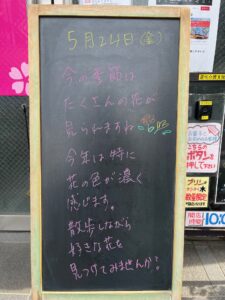 5月24日(金)
今の季節は
たくさんの花が
見られますね
今年は特に
花の色が濃く
感じます。
散歩しながら
好きな花を
見つけてみませんか?
こちらの
ボタンを
押して下さい
プリン
数量限定
10:0